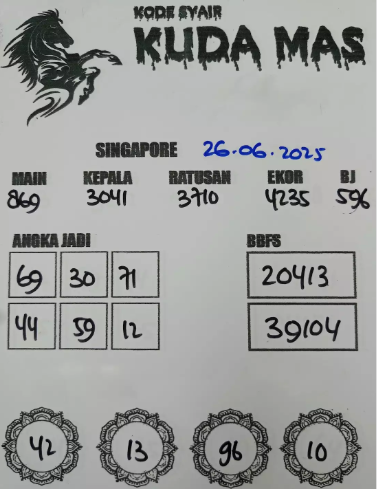 KODE SYAIR
KUDA MAS
SINGAPORE 26.06.2025
MAIN KEPALA RATUSAN EKOR BJ
869 3041 3710 4235 596
ANGKA JADI BBFS
69 30 71 20413
44 59 12 39104
42 13 96 10